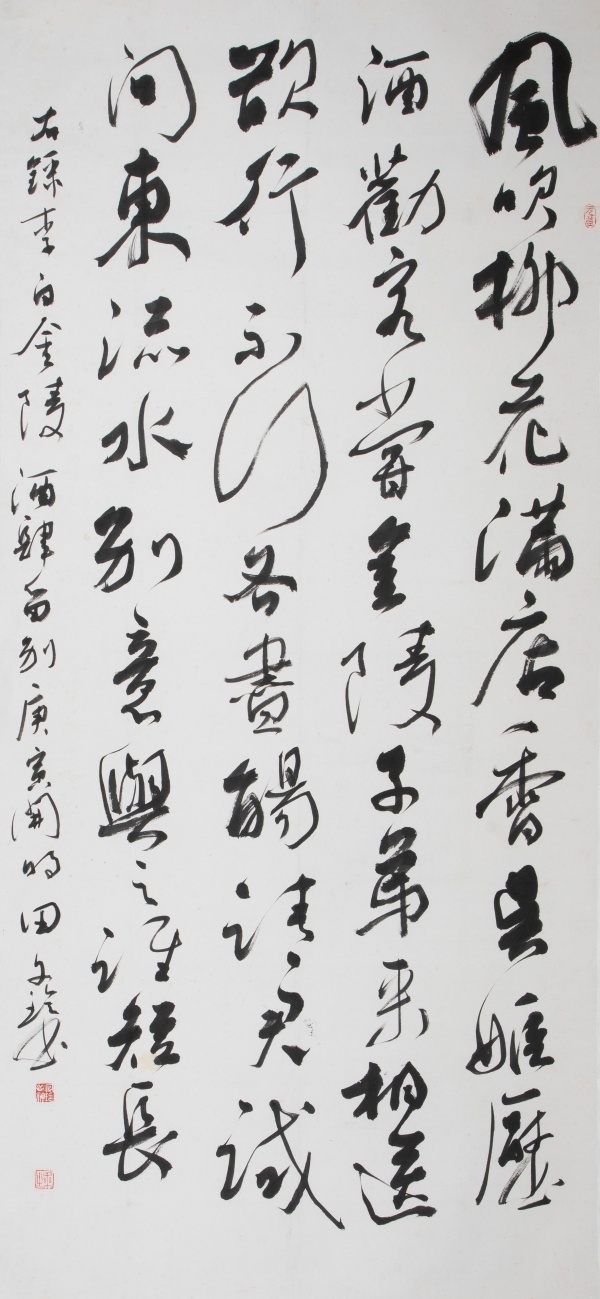 風吹柳花滿店香吳姬壓
酒勸客嘗金陵子弟来相送
欲行不行各盡觴請君試
问東流水別意與之誰短長
右錄李白金陵酒肆留別庚寅開明田文书